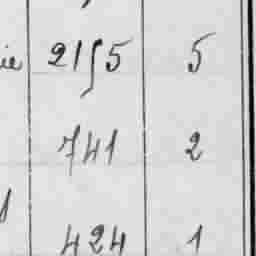 ie 21∫5 5
741 2
424 1